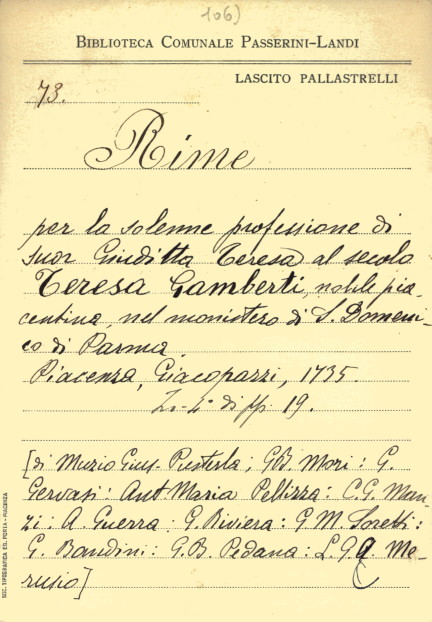 106)
BIBLIOTECA COMUNALE PASSERINI-LANDI
LASCITO PALLASTRELLI
73.
Rime
per la solenne professione di
suor Giuditta Teresa al secolo
Teresa Gamberti, nobile pia
centina, nel monistero di S. Domeni-
co di Parma
Piacenza, Giacopazzi, 1735.
In-4° di pp. 19.
[di Muzio Gius. Pusterla; G.B. Mori: G.
Gervasi: Ant. Maria Pellizza: C.G. Man-
zi: A. Guerra: G. Riviera: G.M. Soretti:
G. Bandini: G.B. Pedana: L.G.A. Me-
rusio]
SOC. TIPOGRAFICA ED. PORTA - PIACENZA